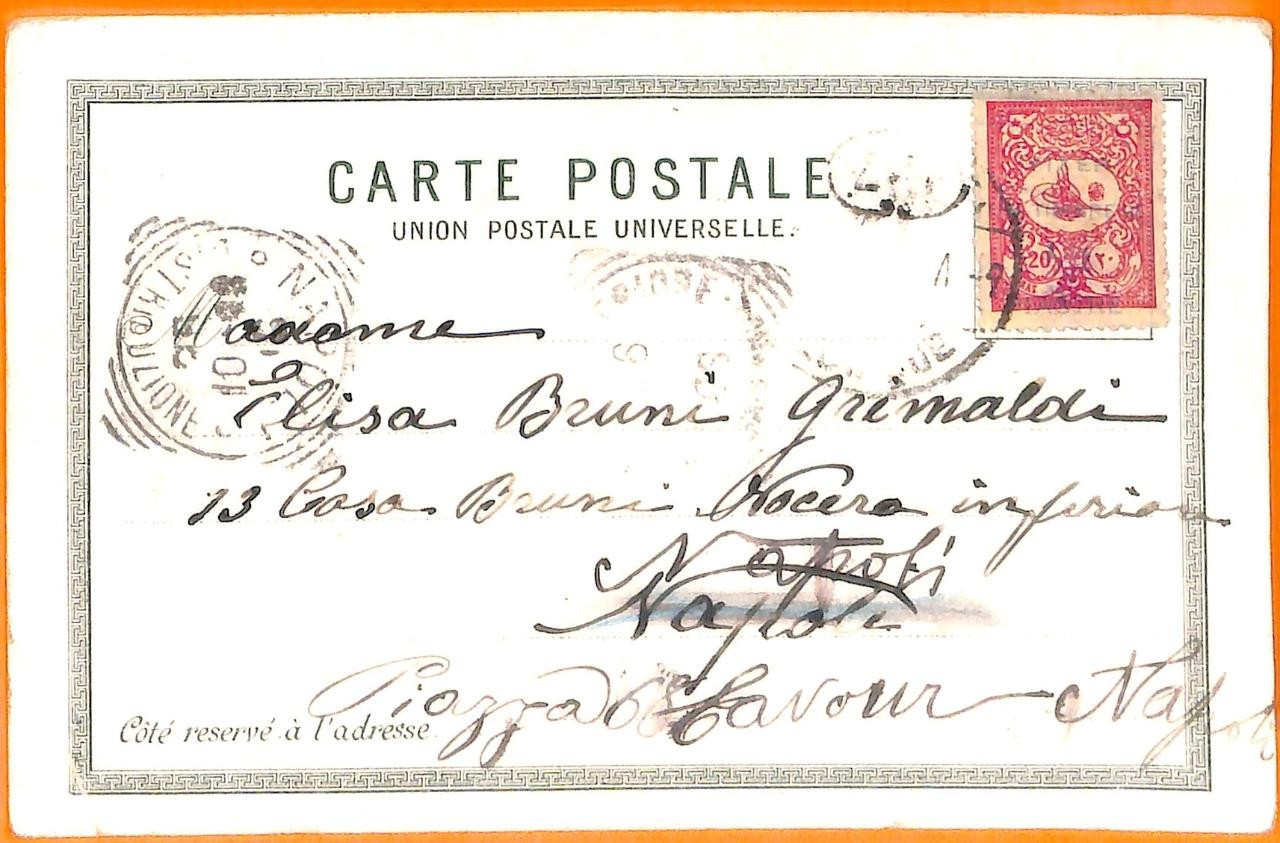 CARTE POSTALE
UNION POSTALE UNIVERSELLE.
20 ٢٠
Madame
Elisa Bruni Grimaldi
13 Casa Bruni Nocera inferiore
Napoli
Napoli
Piazza Cavour Napoli
Côté reservé à l'adresse.